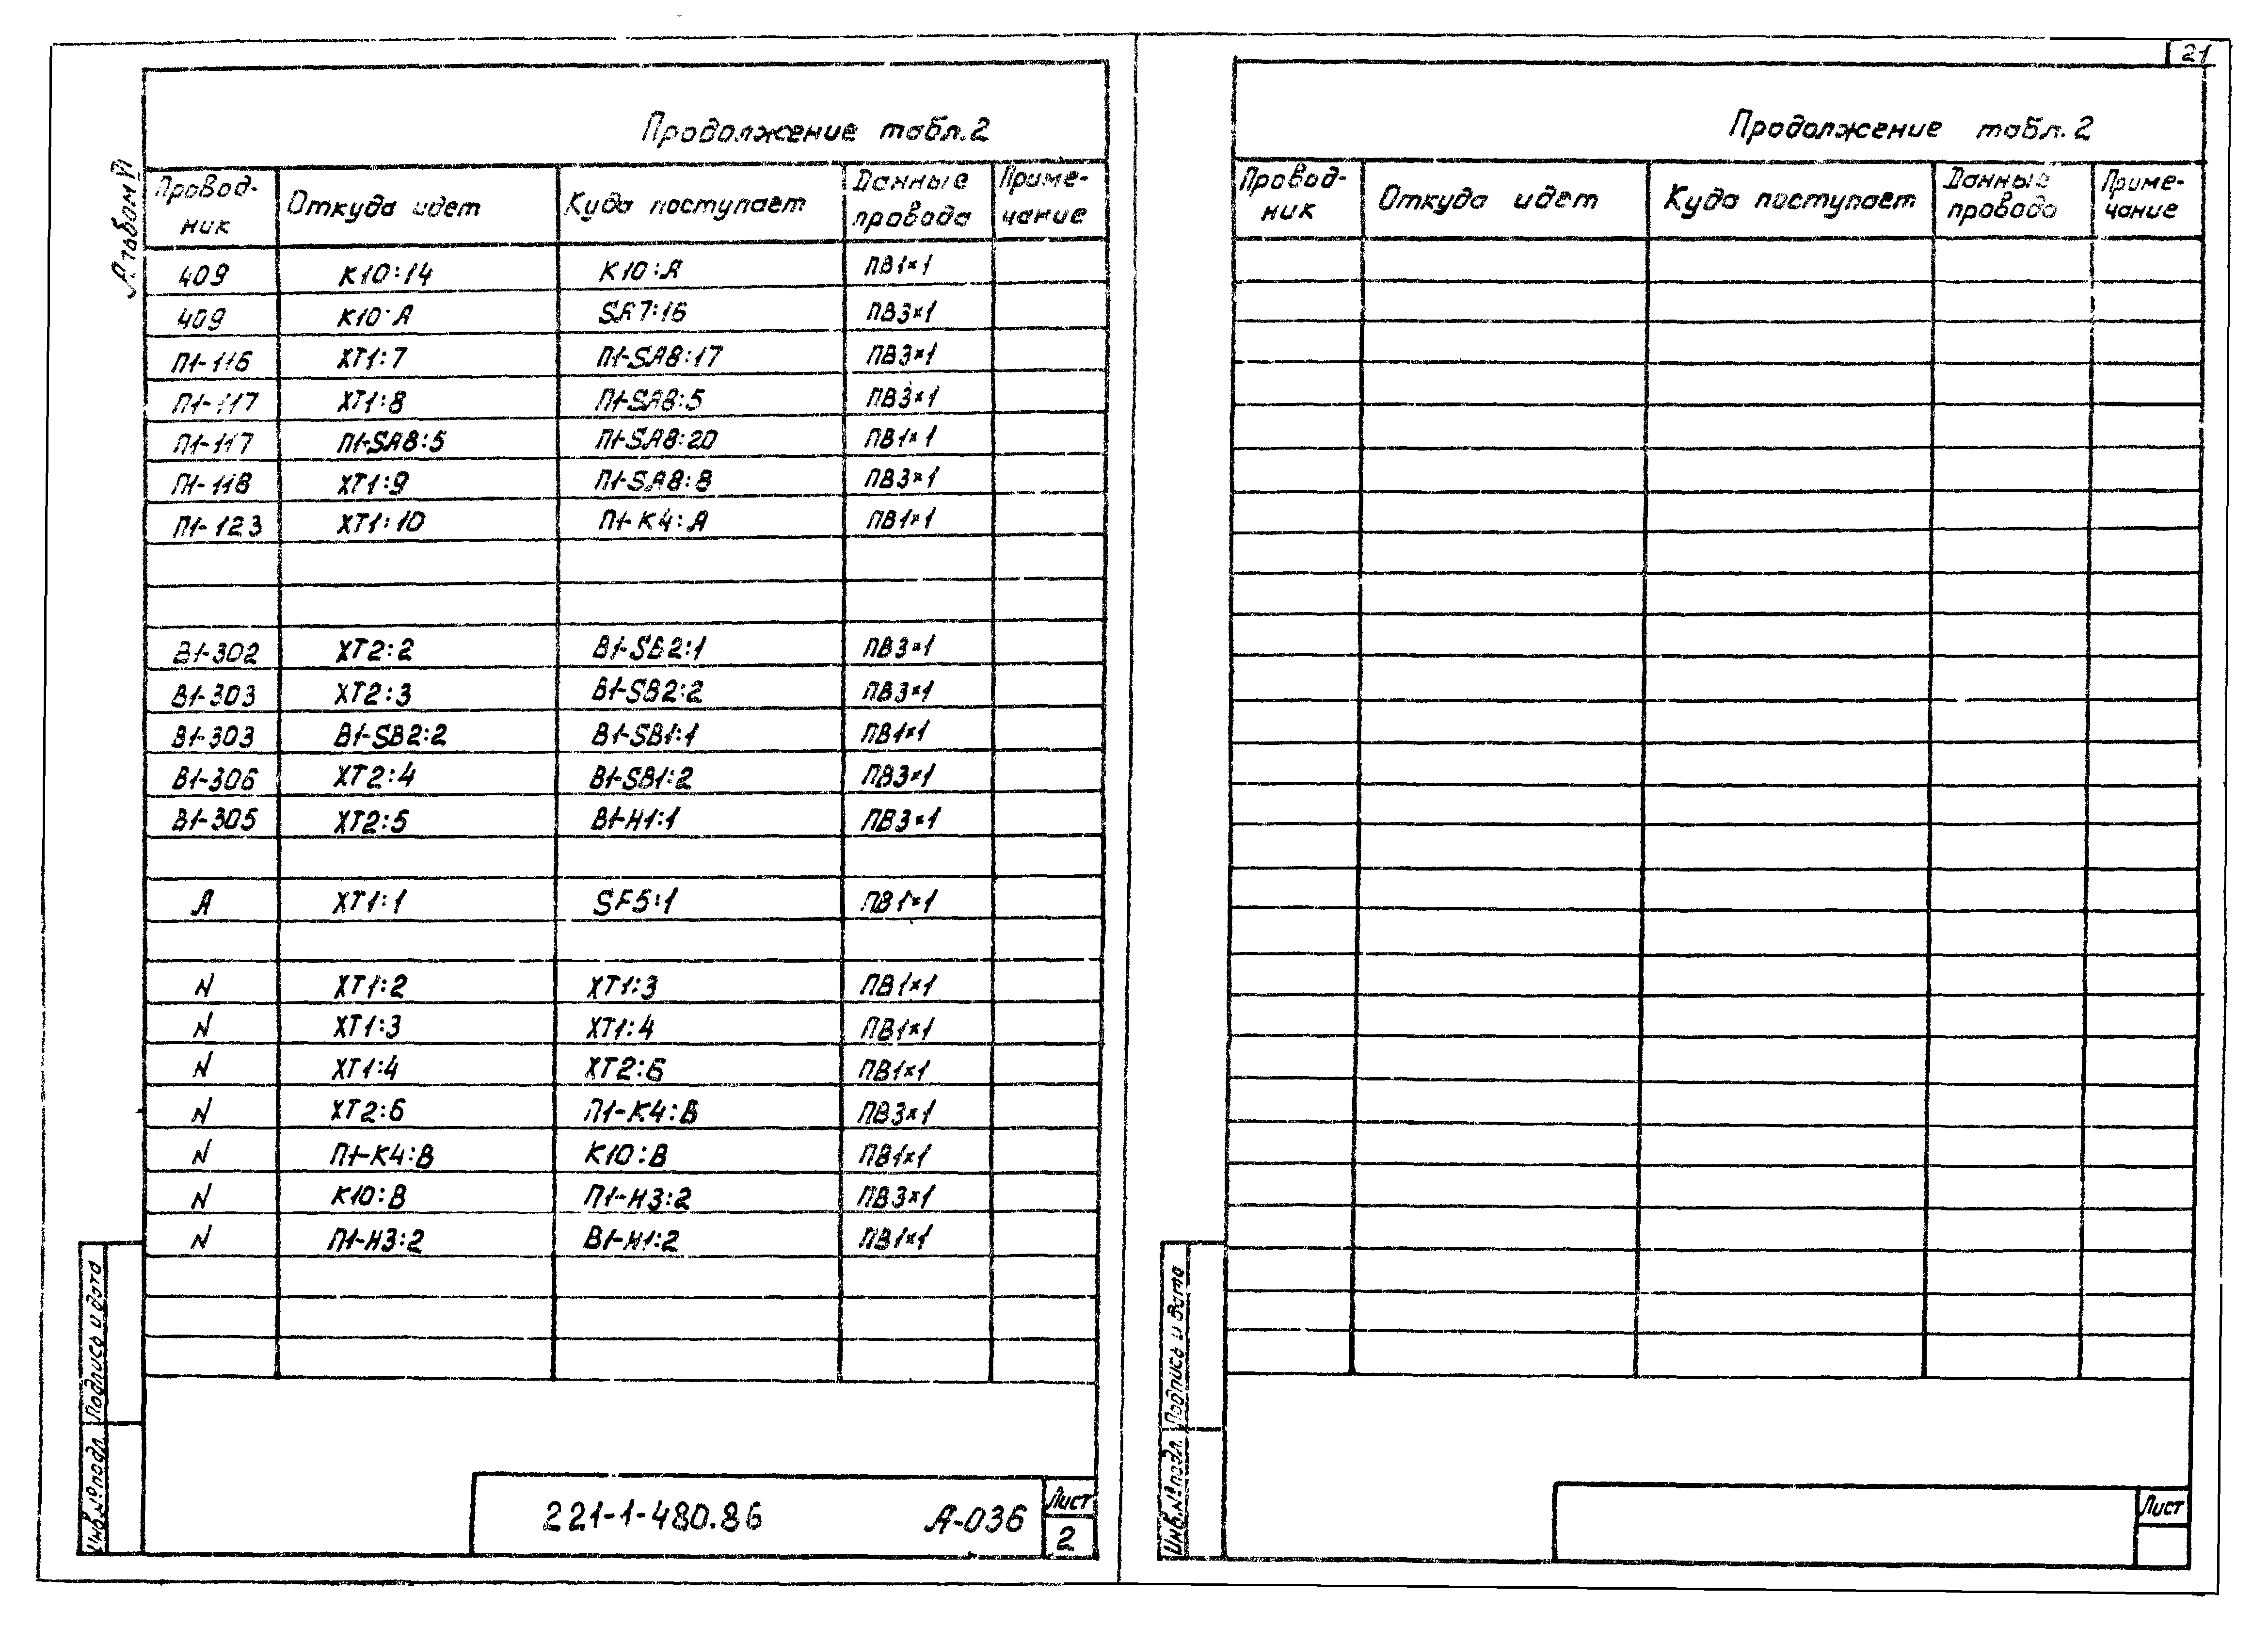 21
Альбом VI
Продолжение табл.2
Провод-ник Откуда идет Куда поступает Данные провода Приме-чание
409 К10:14 К10:А ПВ1×1
409 К10:А SA7:16 ПВ3×1
П1-116 ХТ1:7 П1-SA8:17 ПВ3×1
П1-117 ХТ1:8 П1-SA8:5 ПВ3×1
П1-117 П1-SA8:5 П1-SA8:20 ПВ1×1
П1-118 ХТ1:9 П1-SA8:8 ПВ3×1
П1-123 ХТ1:10 П1-К4:А ПВ1×1
В1-302 ХТ2:2 В1-SB2:1 ПВ3×1
В1-303 ХТ2:3 В1-SB2:2 ПВ3×1
В1-303 В1-SB2:2 В1-SB1:1 ПВ1×1
В1-306 ХТ2:4 В1-SB1:2 ПВ3×1
В1-305 ХТ2:5 В1-Н1:1 ПВ3×1
А ХТ1:1 SF5:1 ПВ1×1
N ХТ1:2 ХТ1:3 ПВ1×1
N ХТ1:3 ХТ1:4 ПВ1×1
N ХТ1:4 ХТ2:6 ПВ1×1
N ХТ2:6 П1-К4:В ПВ3×1
N П1-К4:В К10:В ПВ1×1
N К10:В П1-Н3:2 ПВ3×1
N П1-Н3:2 В1-Н1:2 ПВ1×1
Инв.№подл. Подпись и дата
221-1-480.86 А-036 Лист
2
Продолжение табл.2
Провод-ник Откуда идет Куда поступает Данные провода Приме-чание
Инв.№подл. Подпись и дата
Лист